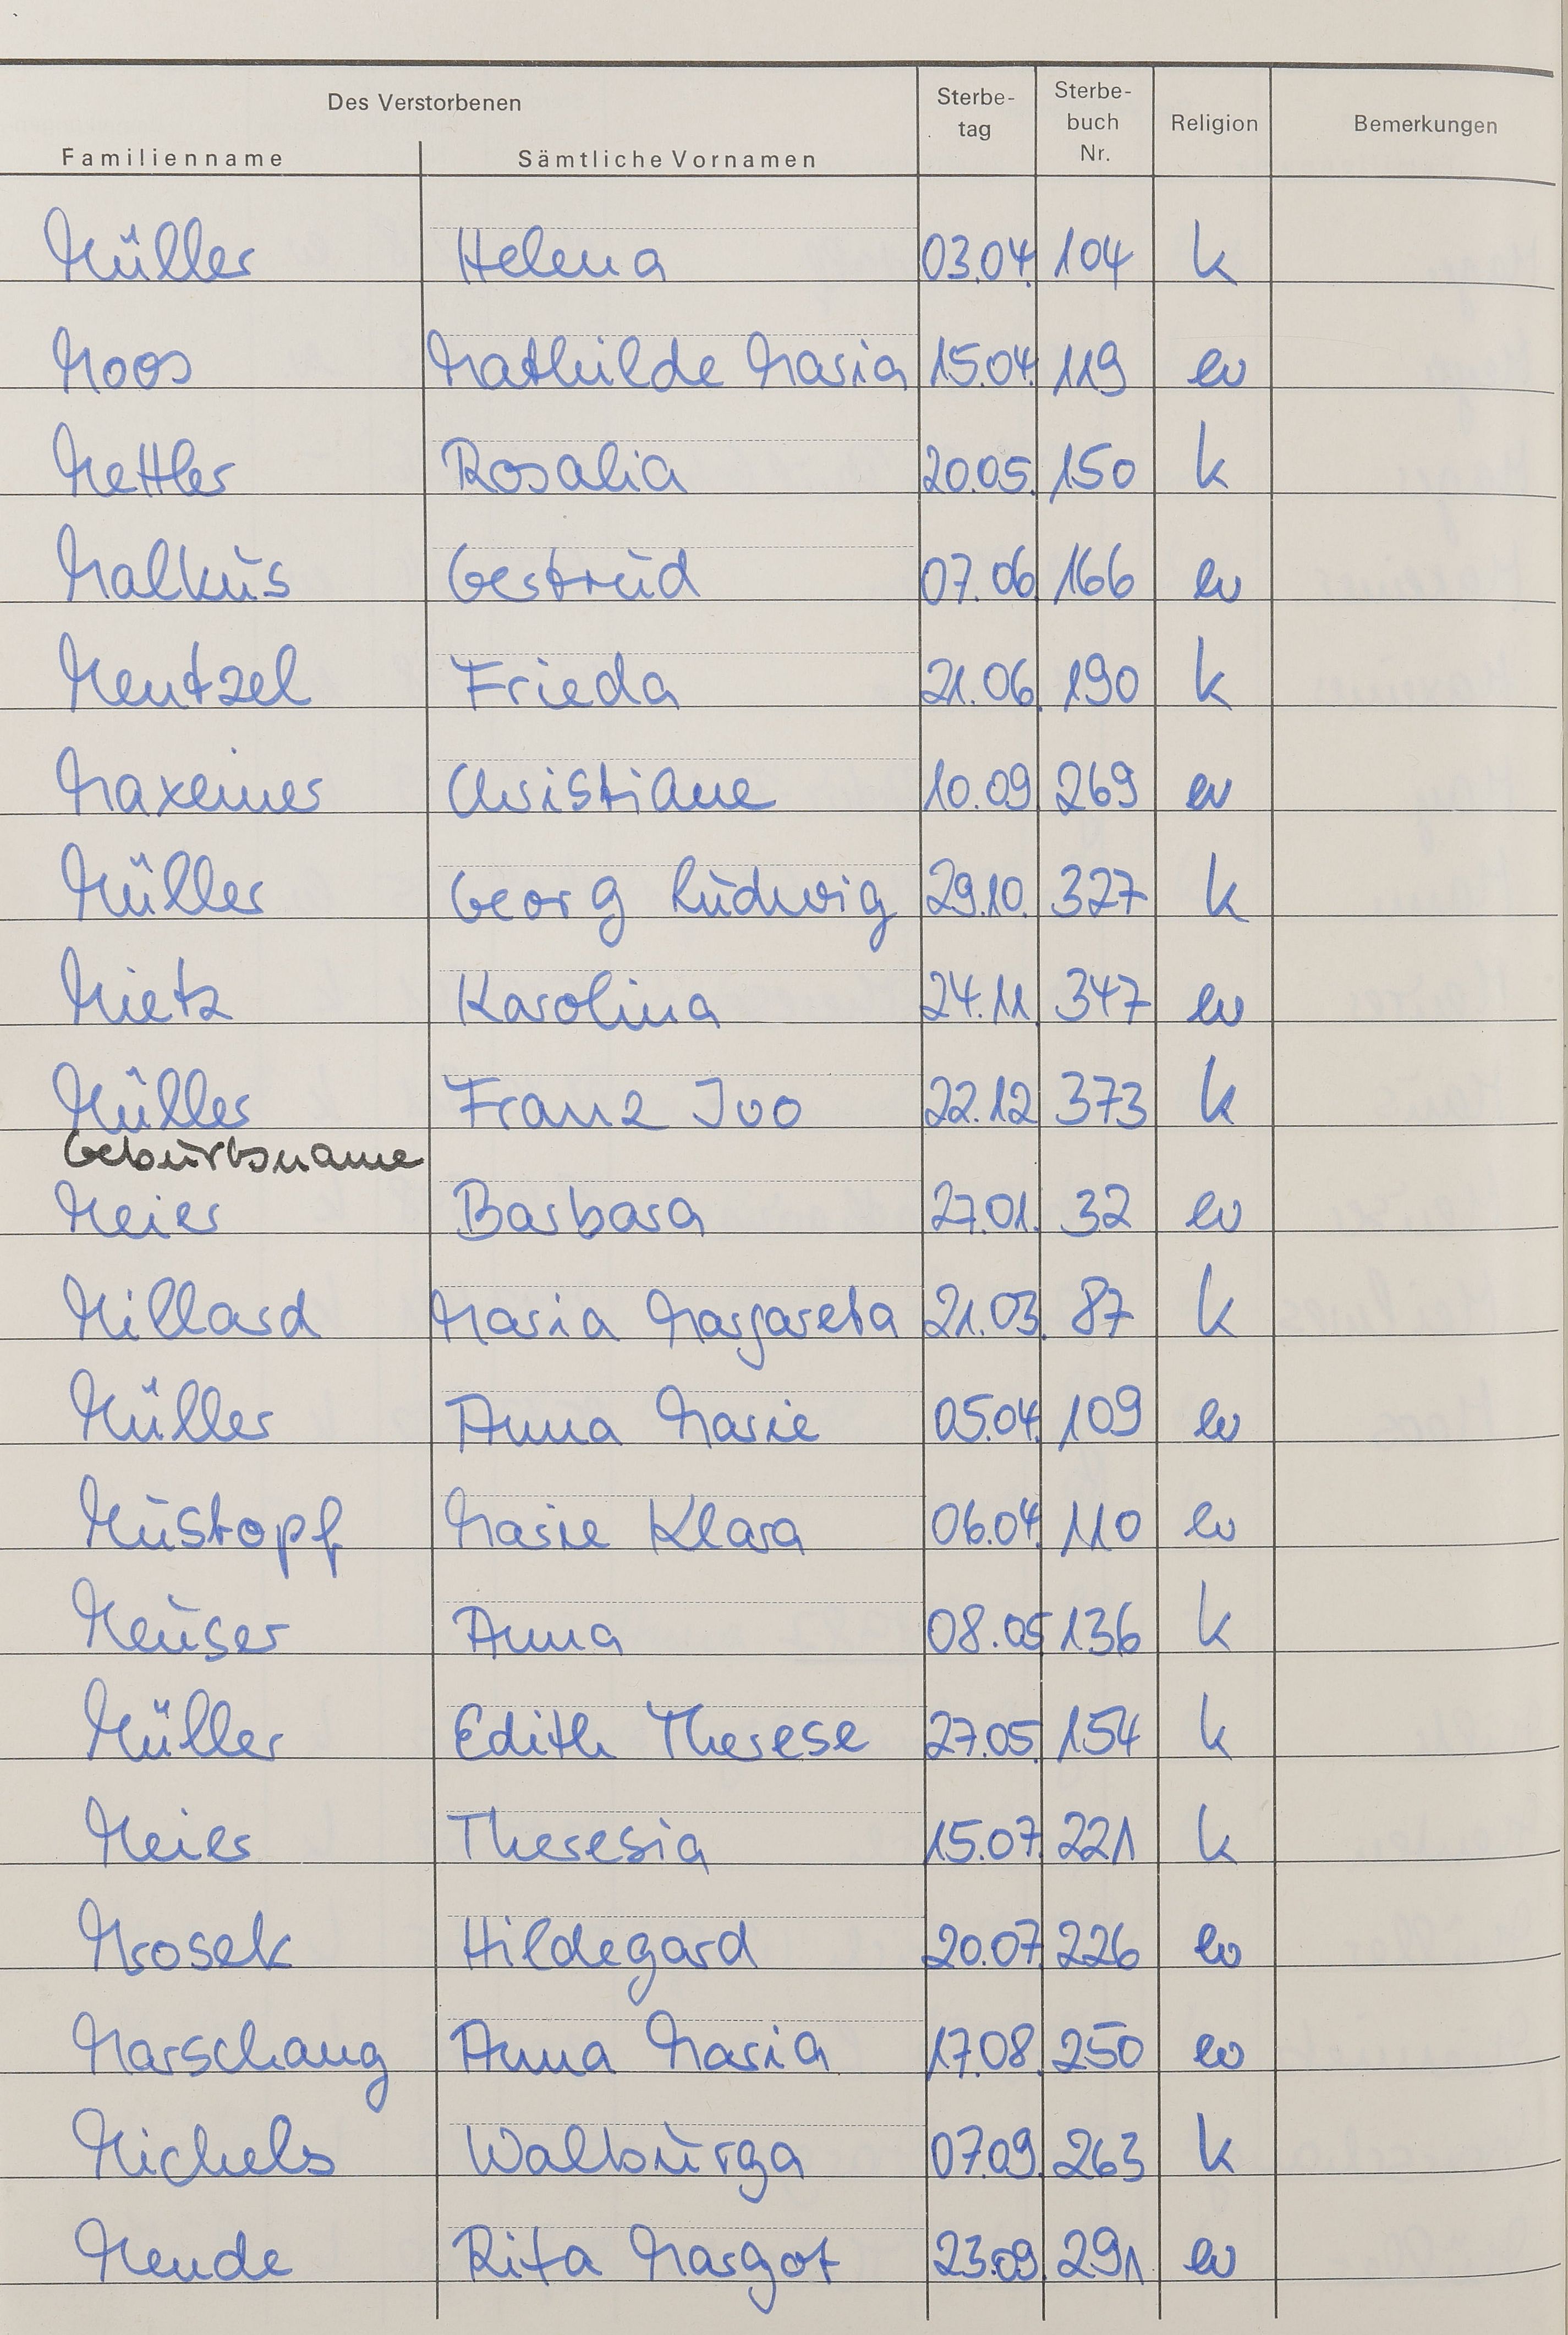 Des Verstorbenen
Familienname Sämtliche Vornamen Sterbe-tag Sterbe-buch Nr. Religion Bemerkungen
Müller Helena 03.04. 104 k
Moos Mathilde Maria 15.04. 119 ev
Mettler Rosalia 20.05. 150 k
Malkus Gertrud 07.06 166 ev
Mentzel Frieda 21.06. 190 k
Maxeiner Christiane 10.09 269 ev
Müller Georg Ludwig 29.10. 327 k
Mietz Karolina 24.11. 347 ev
Müller Franz Ivo 22.12 373 k
Geburtsname
Meier Barbara 27.01. 32 ev
Millard Maria Margareta 21.03. 87 k
Müller Anna Marie 05.04. 109 ev
Mustopf Marie Klara 06.04. 110 ev
Meuser Anna 08.05 136 k
Müller Edith Therese 27.05. 154 k
Meier Theresia 15.07. 221 k
Mrosek Hildegard 20.07. 226 ev
Marschang Anna Maria 17.08. 250 ev
Michels Walburga 07.09. 263 k
Mende Rita Margot 23.09. 291 ev